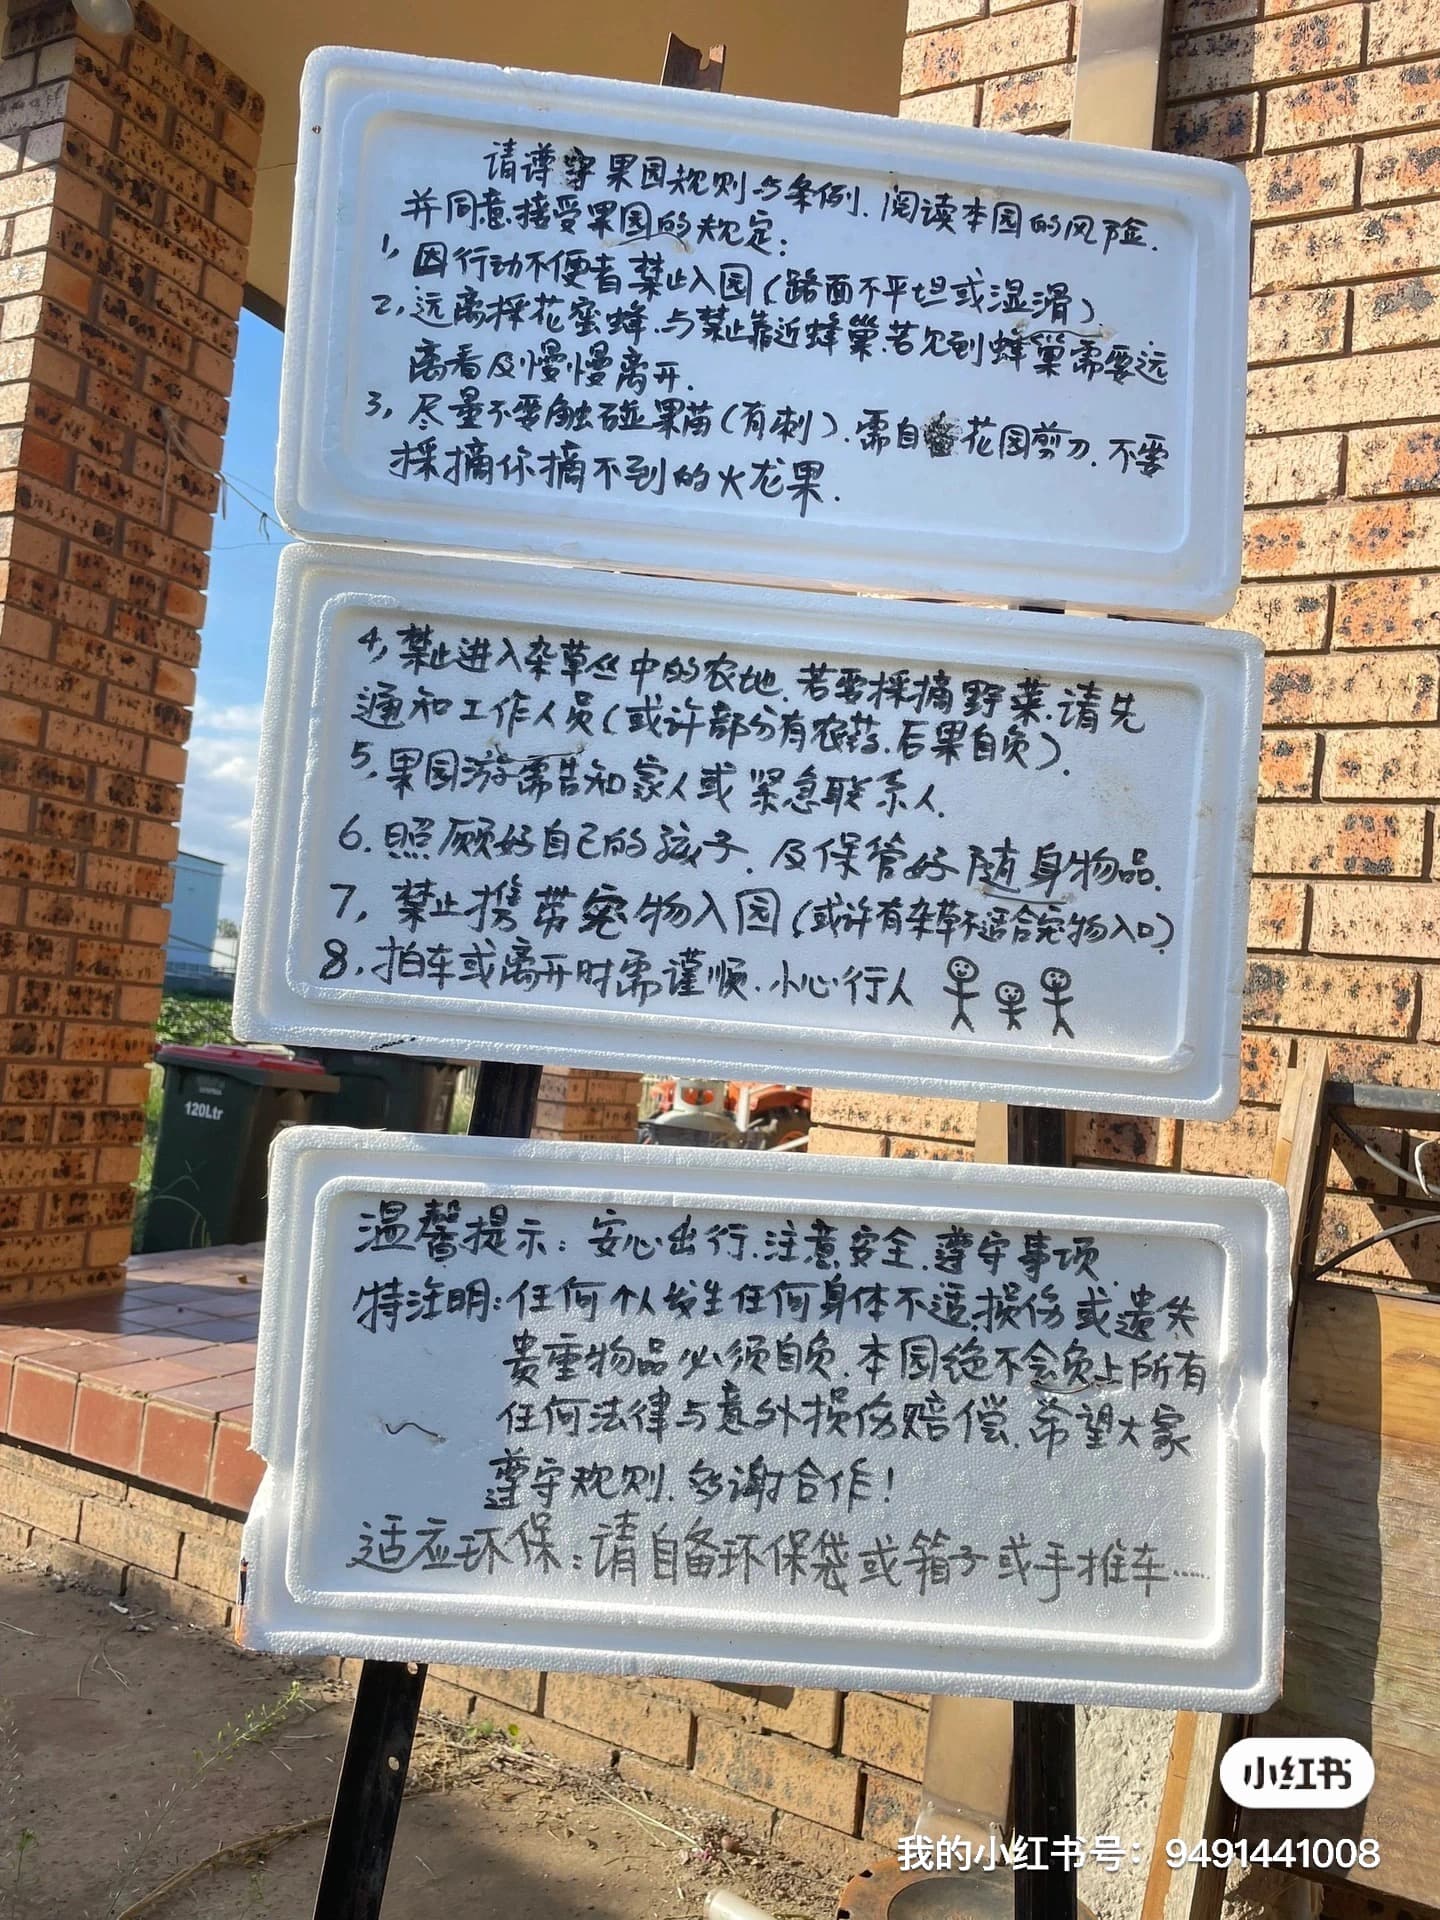 请遵守果园规则与条例.阅读本园的风险.
并同意接受果园的规定:
1,因行动不便者禁止入园(路面不平坦或湿滑)
2,远离採花蜜蜂.与禁止靠近蜂巢.若见到蜂巢需要远
离看及慢慢离开.
3,尽量不要触碰果苗(有刺).需自备花园剪刀.不要
採摘你摘不到的火龙果.
4,禁止进入杂草丛中的农地.若要採摘野菜.请先
通知工作人员(或许部分有农药.后果自负).
5,果园游需告知家人或紧急联系人.
6.照顾好自己的孩子.及保管好随身物品.
7,禁止携带宠物入园(或许有杂草不适合宠物入口)
8,拍车或离开时需谨顺.小心行人
120Ltr
温馨提示:安心出行.注意安全.遵守事项.
特注明:任何个人发生任何身体不适.损伤或遗失
贵重物品必须自负.本园绝不会负上所有
任何法律与意外损伤赔偿.希望大家
遵守规则.多谢合作!
适应环保:请自备环保袋或箱子或手推车......
小红书
我的小红书号：9491441008